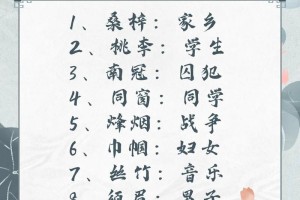 1、桑梓：家乡
2、桃李：学生
3、南冠：囚犯
4、同窗：同学
5、烽烟：战争
6、巾帼：妇女
7、丝竹：音乐
8、须眉：男子